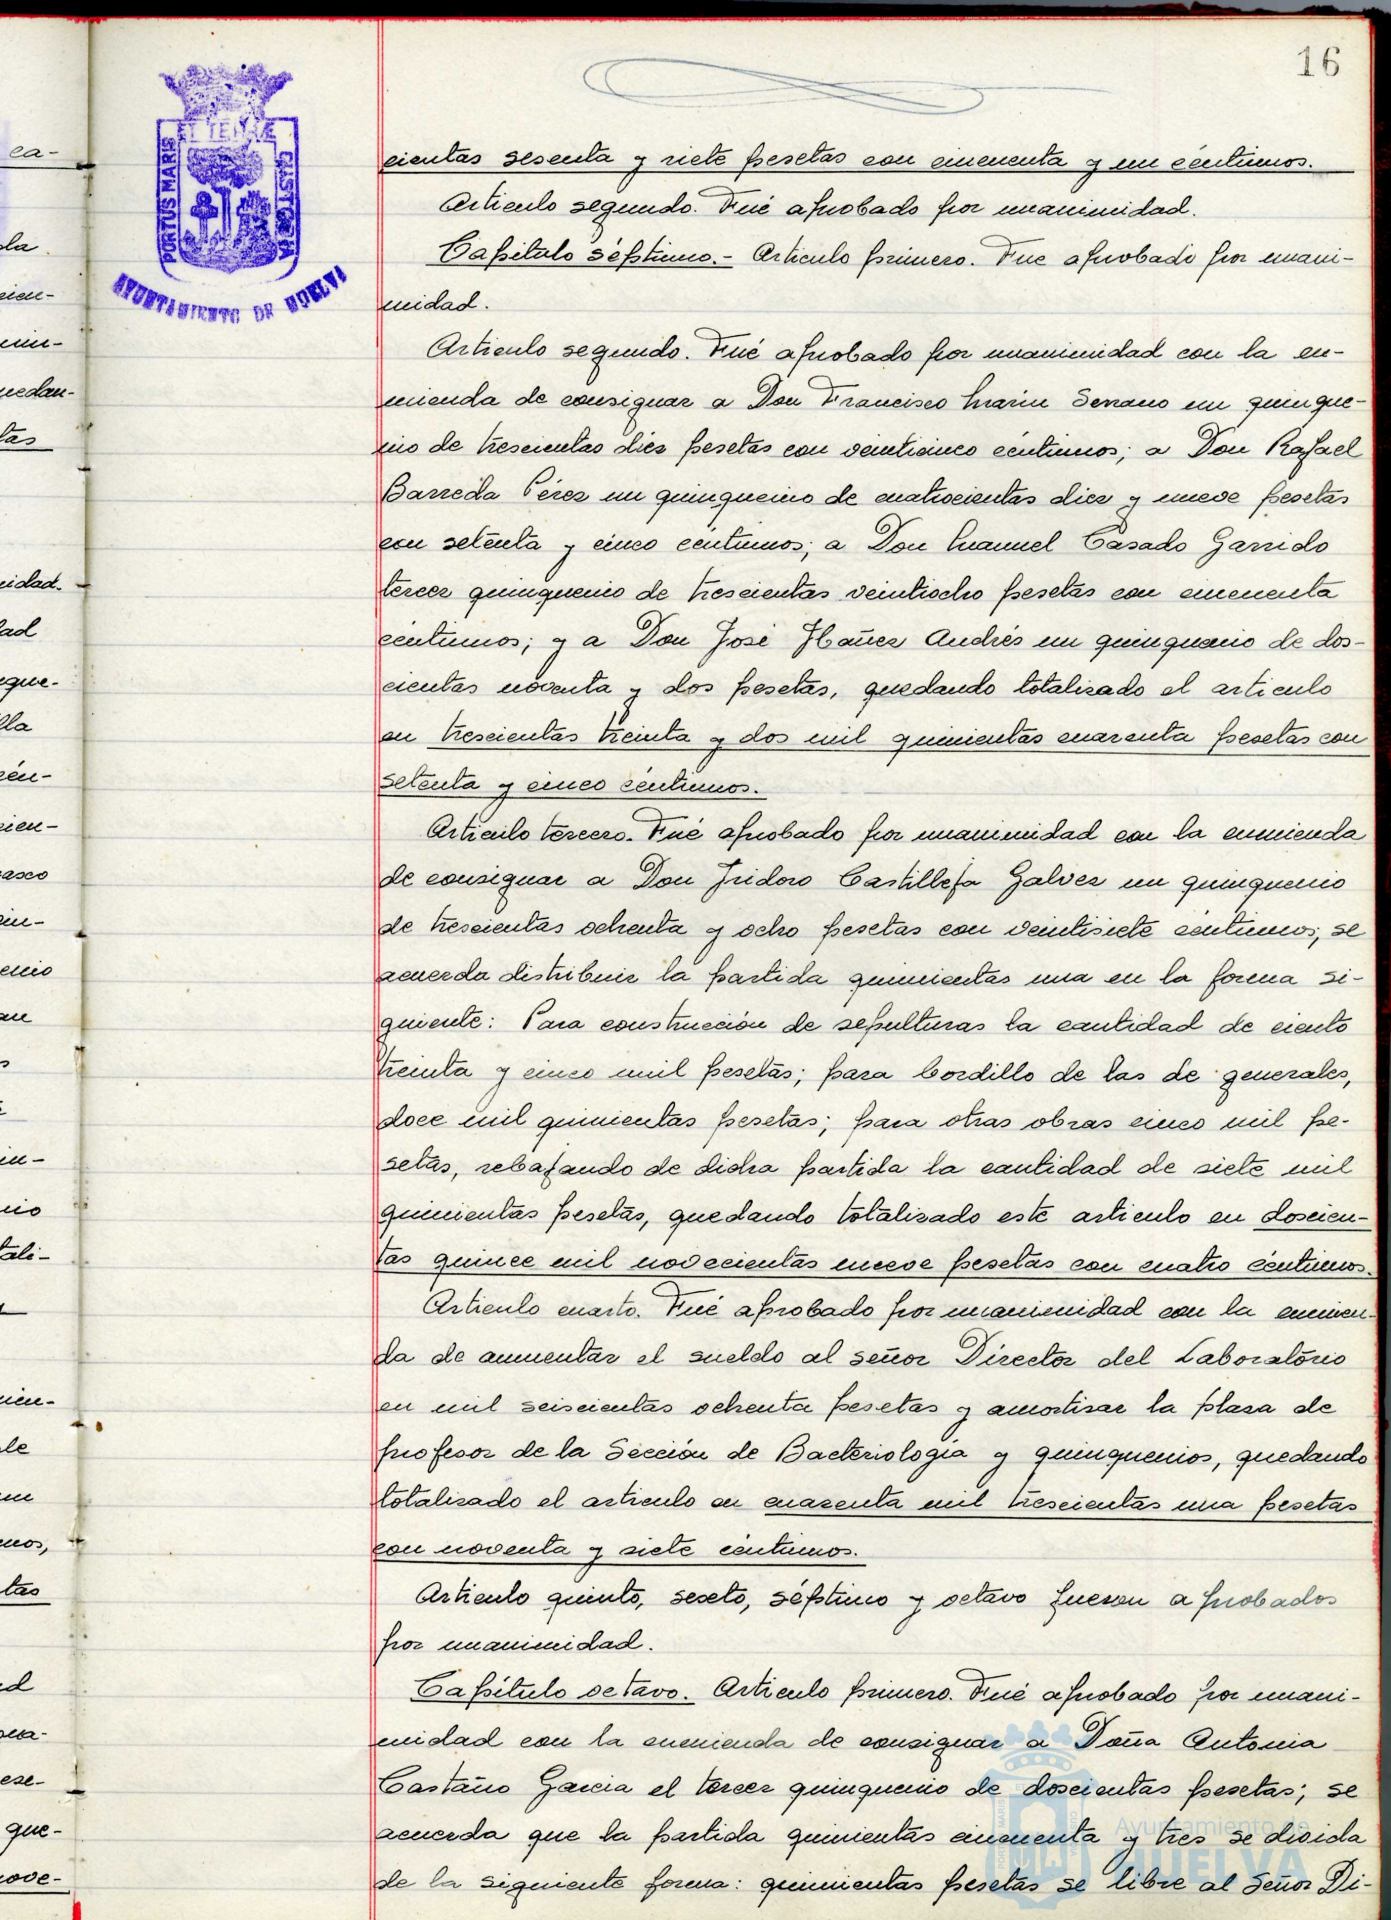 16
PORTUS MARIS ET TERRÆ CUSTODIA
AYUNTAMIENTO DE HUELVA
cientas sesenta y siete pesetas con cincuenta y un céntimos.
Articulo segundo. Fué aprobado por unanimidad.
Capitulo séptimo.- Articulo primero. Fue aprobado por unani-
midad.
Articulo segundo. Fué aprobado por unanimidad con la en-
mienda de consignar a Don Francisco Marin Serrano un quinque-
nio de trescientas diez pesetas con veinticinco céntimos; a Don Rafael
Barreda Pérez un quinquenio de cuatrocientas diez y nueve pesetas
con setenta y cinco céntimos; a Don Manuel Casado Garrido
tercer quinquenio de trescientas veintiocho pesetas con cincuenta
céntimos; y a Don José Ibañez Andrés un quinquenio de dos-
cientas noventa y dos pesetas, quedando totalizado el articulo
en trescientas treinta y dos mil quinientas cuarenta pesetas con
setenta y cinco céntimos.
Articulo tercero. Fué aprobado por unanimidad con la enmienda
de consignar a Don Isidoro Castilleja Galvez un quinquenio
de trescientas ochenta y ocho pesetas con veintisiete céntimos; se
acuerda distribuir la partida quinientas una en la forma si-
guiente: Para construcción de sepulturas la cantidad de ciento
treinta y cinco mil pesetas; para bordillo de las de generales,
doce mil quinientas pesetas; para otras obras cinco mil pe-
setas, rebajando de dicha partida la cantidad de siete mil
quinientas pesetas, quedando totalizado este articulo en doscien-
tas quince mil novecientas nueve pesetas con cuatro céntimos.
Articulo cuarto. Fué aprobado por unanimidad con la enmien-
da de aumentar el sueldo al señor Director del Laboratorio
en mil seiscientas ochenta pesetas y amortizar la plaza de
profesor de la Sección de Bacteriologia y quinquenios, quedando
totalizado el articulo en cuarenta mil trescientas una pesetas
con noventa y siete céntimos.
Articulo quinto, sexto, séptimo y octavo fueron aprobados
por unanimidad.
Capítulo octavo. Articulo primero. Fué aprobado por unani-
midad con la enmienda de consignar a Doña Antonia
Castaño Garcia el tercer quinquenio de doscientas pesetas; se
acuerda que la partida quinientas cincuenta y tres se divida
de la siguiente forma: quinientas pesetas se libre al Señor Di-
Ayuntamiento de
HUELVA